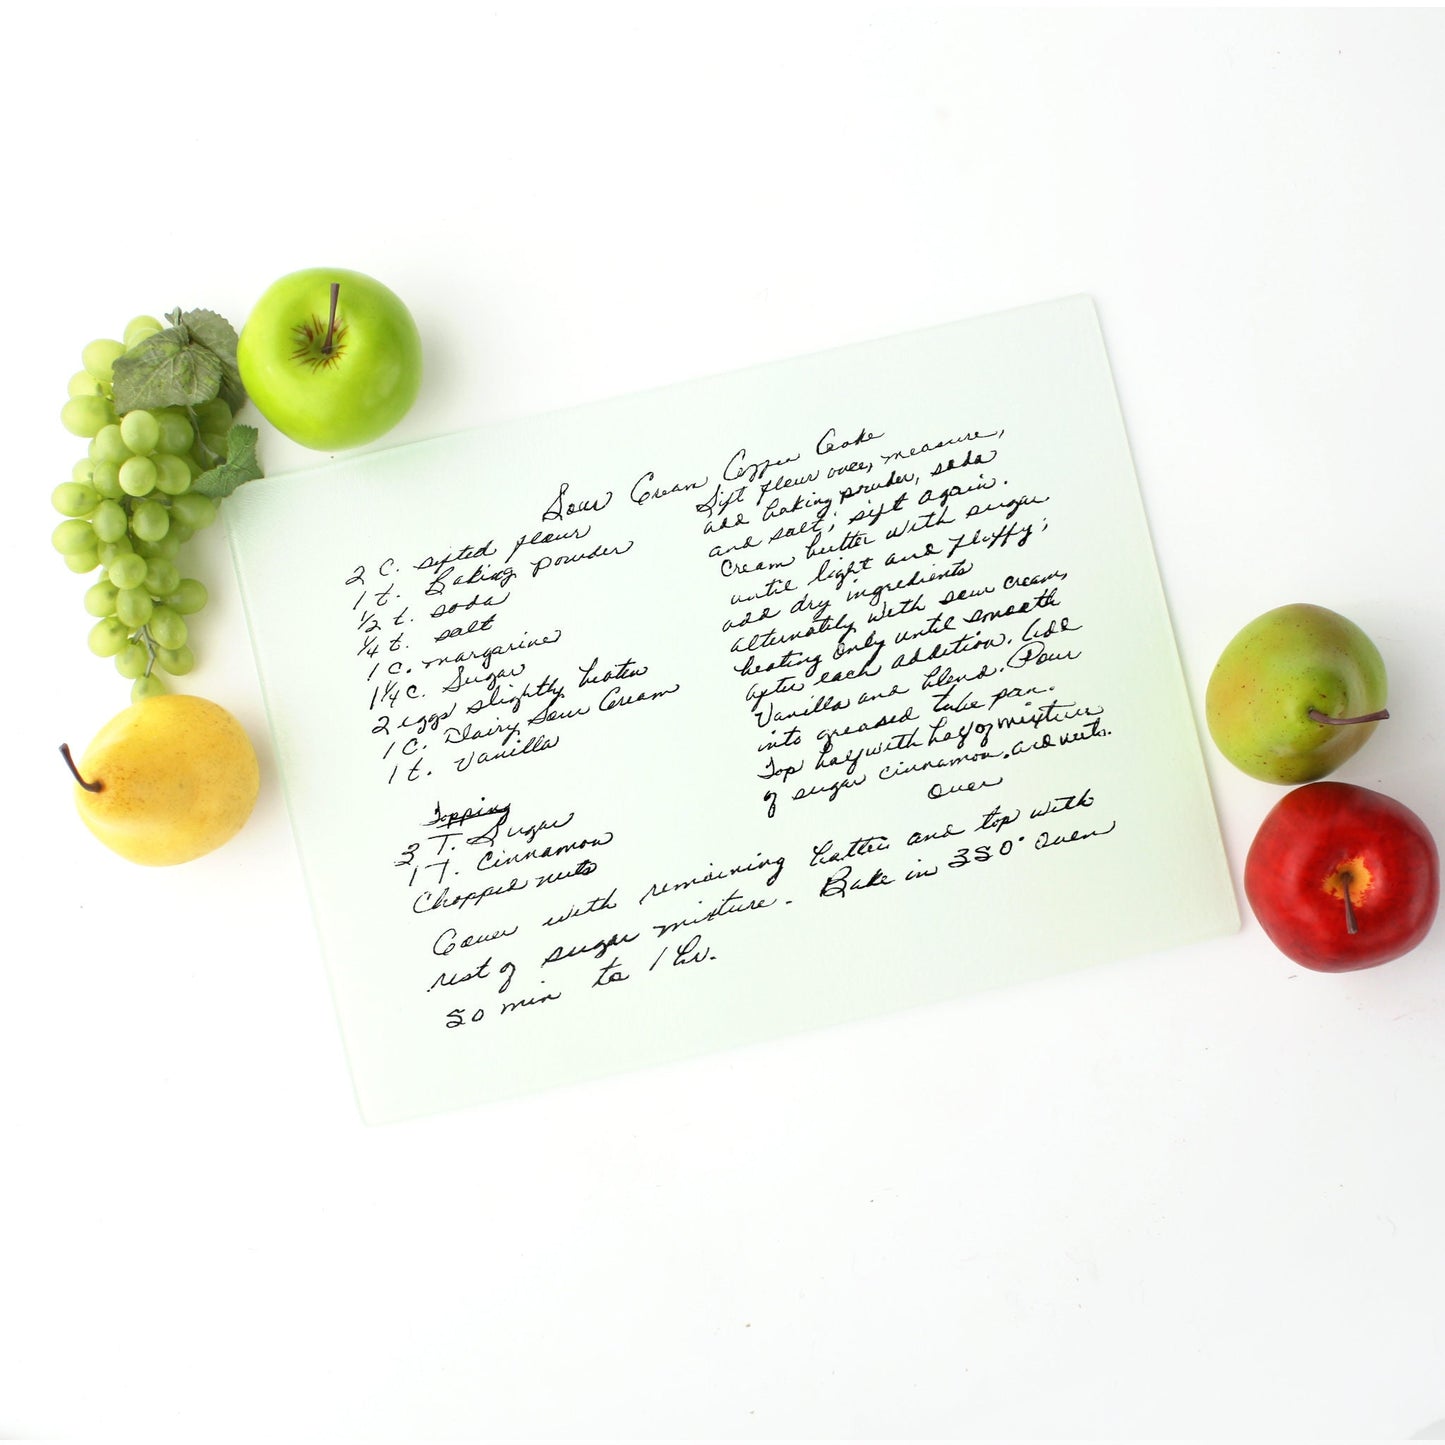 Sour Cream Coffee Cake
2 C. sifted flour
1 t. Baking powder
1/2 t. soda
1/4 t. salt
1 C. margarine
1 1/4 C. Sugar
2 eggs slightly beaten
1 C. Dairy Sour Cream
1 t. Vanilla
Topping
3 T. Sugar
1 T. Cinnamon
Chopped nuts
Sift flour once, measure,
add baking powder, soda
and salt; sift again.
Cream butter with sugar
until light and fluffy;
add dry ingredients
alternately with sour cream,
beating only until smooth
after each addition. Add
Vanilla and blend. Pour
into greased tube pan.
Top half with half of mixture
of sugar cinnamon, and nuts.
Over
Cover with remaining batter and top with
rest of sugar mixture. Bake in 350° oven
50 min to 1 hr.